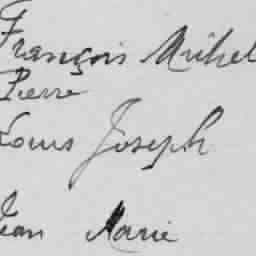 François Michel
Pierre
Louis Joseph
Jean Marie